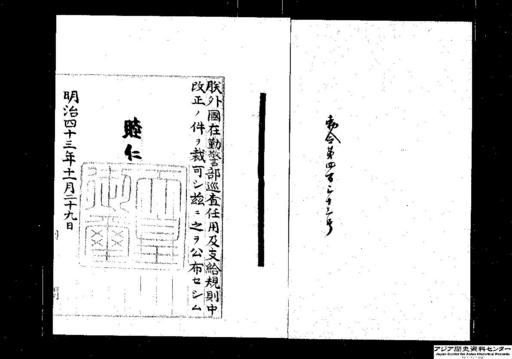 勅令第四百三十三号
朕外國在勤警部巡査任用及支給規則中
改正ノ件ヲ裁可シ茲ニ之ヲ公布セシム
睦仁
天皇御璽
明治四十三年十一月二十九日
アジア歴史資料センター
Japan Center for Asian Historical Records